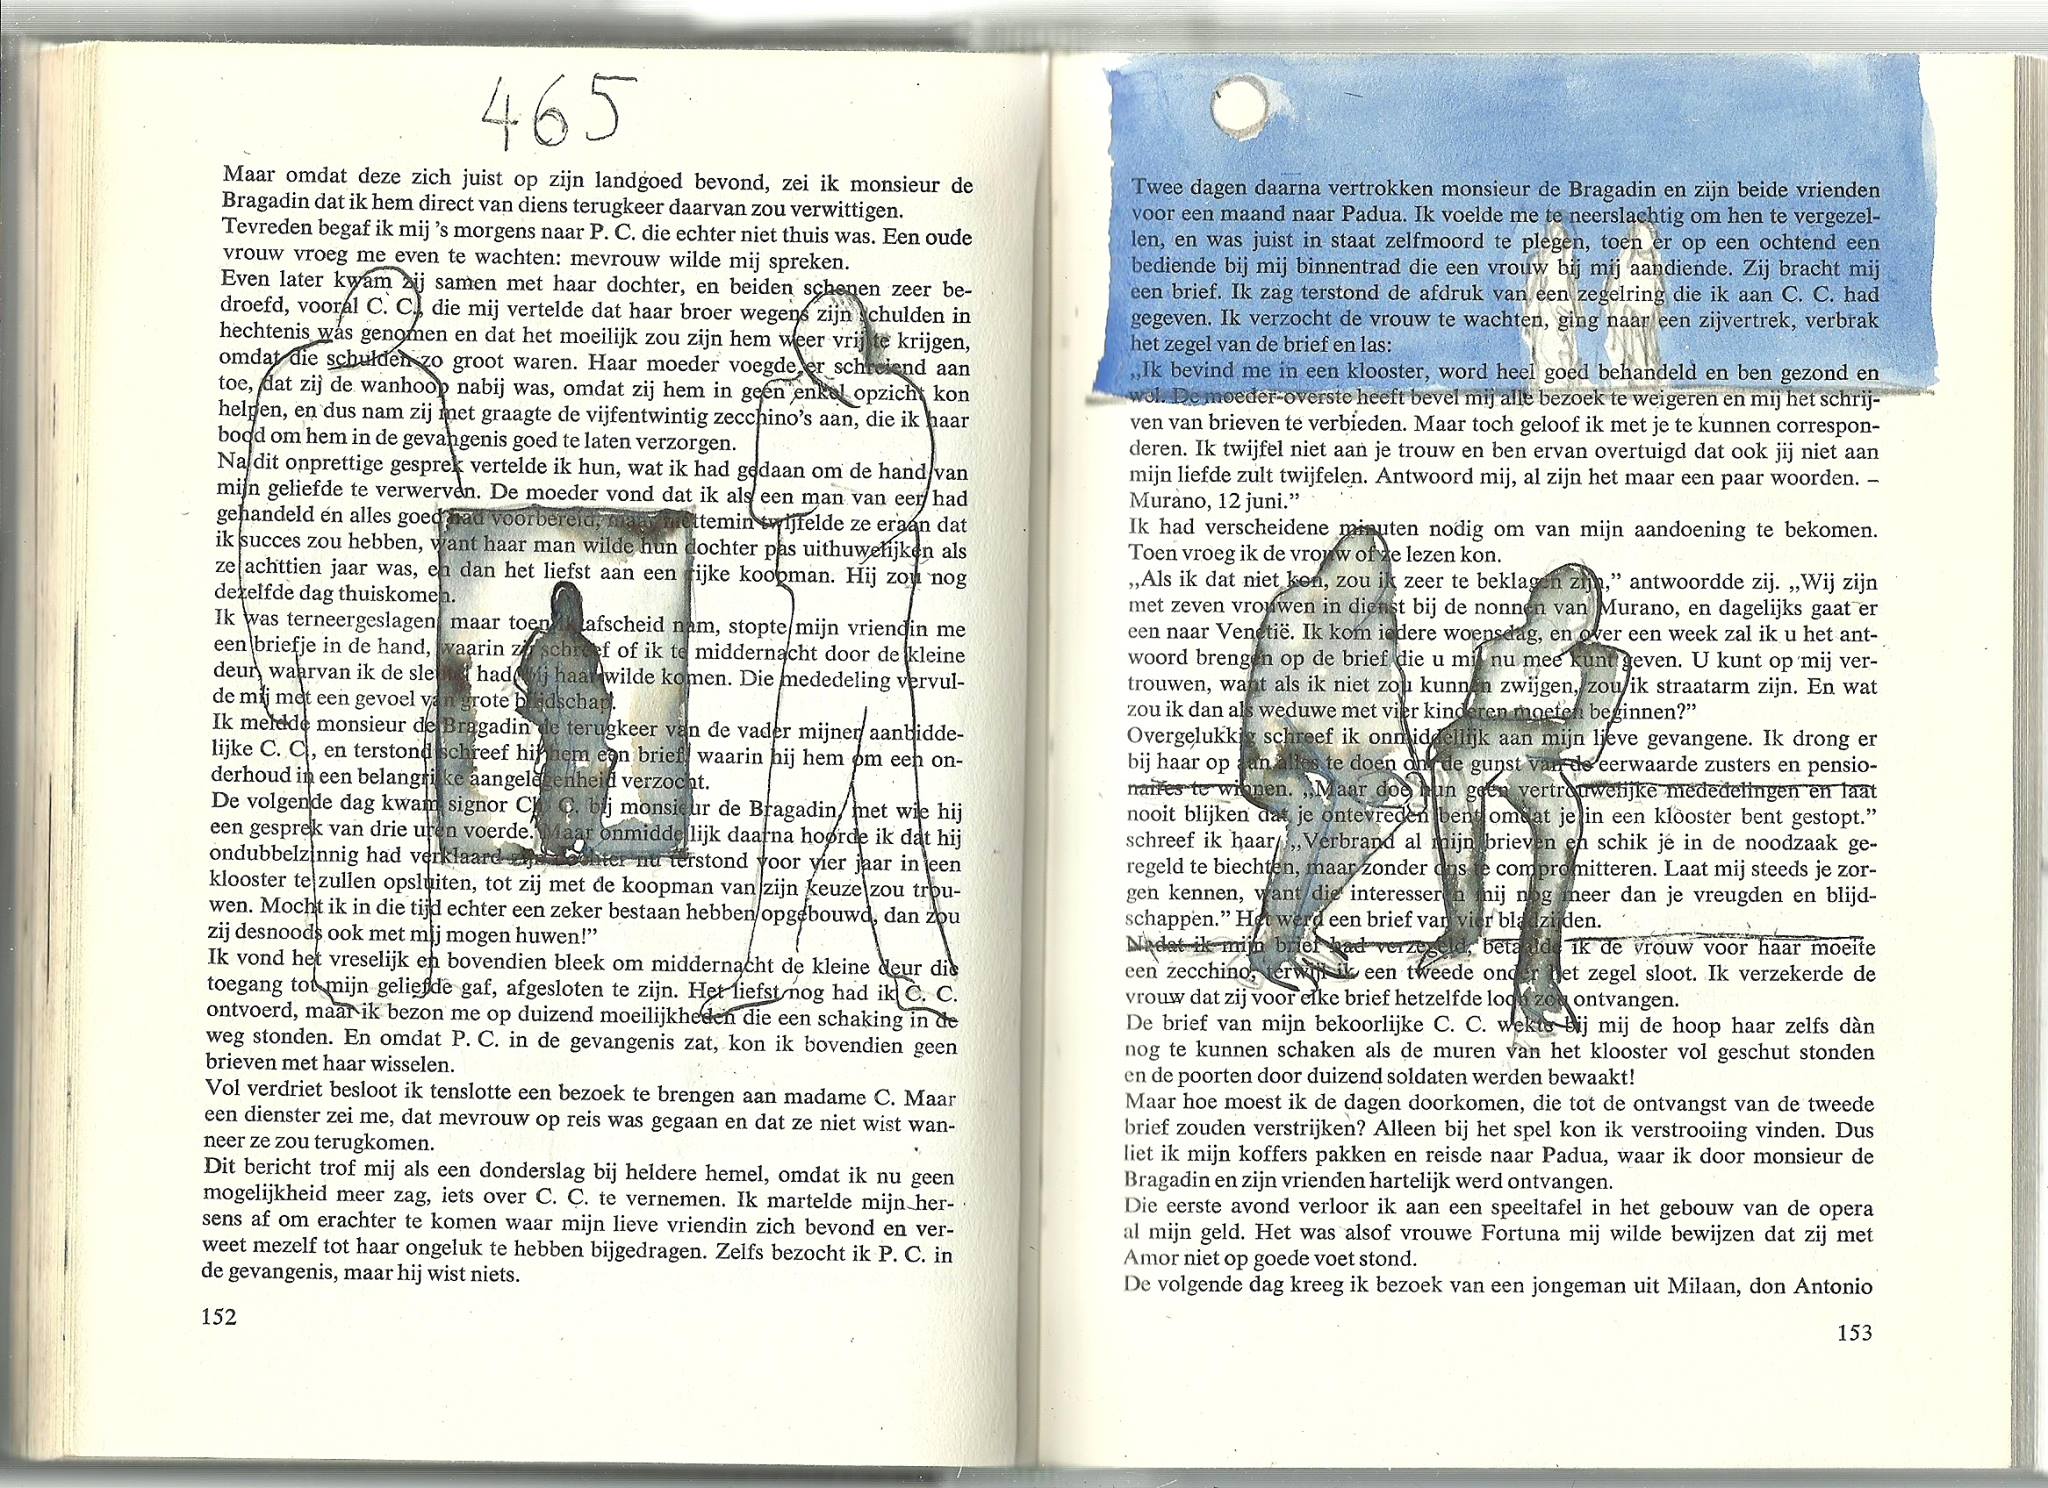 465
Maar omdat deze zich juist op zijn landgoed bevond, zei ik monsieur de
Bragadin dat ik hem direct van diens terugkeer daarvan zou verwittigen.
Tevreden begaf ik mij 's morgens naar P. C. die echter niet thuis was. Een oude
vrouw vroeg me even te wachten: mevrouw wilde mij spreken.
Even later kwam zij samen met haar dochter, en beiden schenen zeer be-
droefd, vooral C. C., die mij vertelde dat haar broer wegens zijn schulden in
hechtenis was genomen en dat het moeilijk zou zijn hem weer vrij te krijgen,
omdat die schulden zo groot waren. Haar moeder voegde er schreiend aan
toe, dat zij de wanhoop nabij was, omdat zij hem in geen enkel opzicht kon
helpen, en dus nam zij met graagte de vijfentwintig zecchino's aan, die ik haar
bood om hem in de gevangenis goed te laten verzorgen.
Na dit onprettige gesprek vertelde ik hun, wat ik had gedaan om de hand van
mijn geliefde te verwerven. De moeder vond dat ik als een man van eer had
gehandeld en alles goed had voorbereid, maar niettemin twijfelde ze eraan dat
ik succes zou hebben, want haar man wilde hun dochter pas uithuwelijken als
ze achttien jaar was, en dan het liefst aan een rijke koopman. Hij zou nog
dezelfde dag thuiskomen.
Ik was terneergeslagen, maar toen ik afscheid nam, stopte mijn vriendin me
een briefje in de hand, waarin zij schreef of ik te middernacht door de kleine
deur, waarvan ik de sleutel had, bij haar wilde komen. Die mededeling vervul-
de mij met een gevoel van grote blijdschap.
Ik meldde monsieur de Bragadin de terugkeer van de vader mijner aanbidde-
lijke C. C., en terstond schreef hij hem een brief, waarin hij hem om een on-
derhoud in een belangrijke aangelegenheid verzocht.
De volgende dag kwam signor Ch. C. bij monsieur de Bragadin, met wie hij
een gesprek van drie uren voerde. Maar onmiddellijk daarna hoorde ik dat hij
ondubbelzinnig had verklaard zijn dochter nu terstond voor vier jaar in een
klooster te zullen opsluiten, tot zij met de koopman van zijn keuze zou trou-
wen. Mocht ik in die tijd echter een zeker bestaan hebben opgebouwd, dan zou
zij desnoods ook met mij mogen huwen!”
Ik vond het vreselijk en bovendien bleek om middernacht de kleine deur die
toegang tot mijn geliefde gaf, afgesloten te zijn. Het liefst nog had ik C. C.
ontvoerd, maar ik bezon me op duizend moeilijkheden die een schaking in de
weg stonden. En omdat P. C. in de gevangenis zat, kon ik bovendien geen
brieven met haar wisselen.
Vol verdriet besloot ik tenslotte een bezoek te brengen aan madame C. Maar
een dienster zei me, dat mevrouw op reis was gegaan en dat ze niet wist wan-
neer ze zou terugkomen.
Dit bericht trof mij als een donderslag bij heldere hemel, omdat ik nu geen
mogelijkheid meer zag, iets over C. C. te vernemen. Ik martelde mijn her-
sens af om erachter te komen waar mijn lieve vriendin zich bevond en ver-
weet mezelf tot haar ongeluk te hebben bijgedragen. Zelfs bezocht ik P. C. in
de gevangenis, maar hij wist niets.
152
Twee dagen daarna vertrokken monsieur de Bragadin en zijn beide vrienden
voor een maand naar Padua. Ik voelde me te neerslachtig om hen te vergezel-
len, en was juist in staat zelfmoord te plegen, toen er op een ochtend een
bediende bij mij binnentrad die een vrouw bij mij aandiende. Zij bracht mij
een brief. Ik zag terstond de afdruk van een zegelring die ik aan C. C. had
gegeven. Ik verzocht de vrouw te wachten, ging naar een zijvertrek, verbrak
het zegel van de brief en las:
„Ik bevind me in een klooster, word heel goed behandeld en ben gezond en
wel. De moeder-overste heeft bevel mij alle bezoek te weigeren en mij het schrij-
ven van brieven te verbieden. Maar toch geloof ik met je te kunnen correspon-
deren. Ik twijfel niet aan je trouw en ben ervan overtuigd dat ook jij niet aan
mijn liefde zult twijfelen. Antwoord mij, al zijn het maar een paar woorden. –
Murano, 12 juni.”
Ik had verscheidene minuten nodig om van mijn aandoening te bekomen.
Toen vroeg ik de vrouw of ze lezen kon.
„Als ik dat niet kon, zou ik zeer te beklagen zijn,” antwoordde zij. „Wij zijn
met zeven vrouwen in dienst bij de nonnen van Murano, en dagelijks gaat er
een naar Venetië. Ik kom iedere woensdag, en over een week zal ik u het ant-
woord brengen op de brief die u mij nu mee kunt geven. U kunt op mij ver-
trouwen, want als ik niet zou kunnen zwijgen, zou ik straatarm zijn. En wat
zou ik dan als weduwe met vier kinderen moeten beginnen?”
Overgelukkig schreef ik onmiddellijk aan mijn lieve gevangene. Ik drong er
bij haar op aan alles te doen om de gunst van de eerwaarde zusters en pensio-
naires te winnen. „Maar doe hun geen vertrouwelijke mededelingen en laat
nooit blijken dat je ontevreden bent omdat je in een klooster bent gestopt.”
schreef ik haar. „Verbrand al mijn brieven en schik je in de noodzaak ge-
regeld te biechten, maar zonder ons te compromitteren. Laat mij steeds je zor-
gen kennen, want die interesseren mij nog meer dan je vreugden en blijd-
schappen.” Het werd een brief van vier bladzijden.
Nadat ik mijn brief had verzegeld, betaalde ik de vrouw voor haar moeite
een zecchino, terwijl ik een tweede onder het zegel sloot. Ik verzekerde de
vrouw dat zij voor elke brief hetzelfde loon zou ontvangen.
De brief van mijn bekoorlijke C. C. wekte bij mij de hoop haar zelfs dàn
nog te kunnen schaken als de muren van het klooster vol geschut stonden
en de poorten door duizend soldaten werden bewaakt!
Maar hoe moest ik de dagen doorkomen, die tot de ontvangst van de tweede
brief zouden verstrijken? Alleen bij het spel kon ik verstrooiing vinden. Dus
liet ik mijn koffers pakken en reisde naar Padua, waar ik door monsieur de
Bragadin en zijn vrienden hartelijk werd ontvangen.
Die eerste avond verloor ik aan een speeltafel in het gebouw van de opera
al mijn geld. Het was alsof vrouwe Fortuna mij wilde bewijzen dat zij met
Amor niet op goede voet stond.
De volgende dag kreeg ik bezoek van een jongeman uit Milaan, don Antonio
153